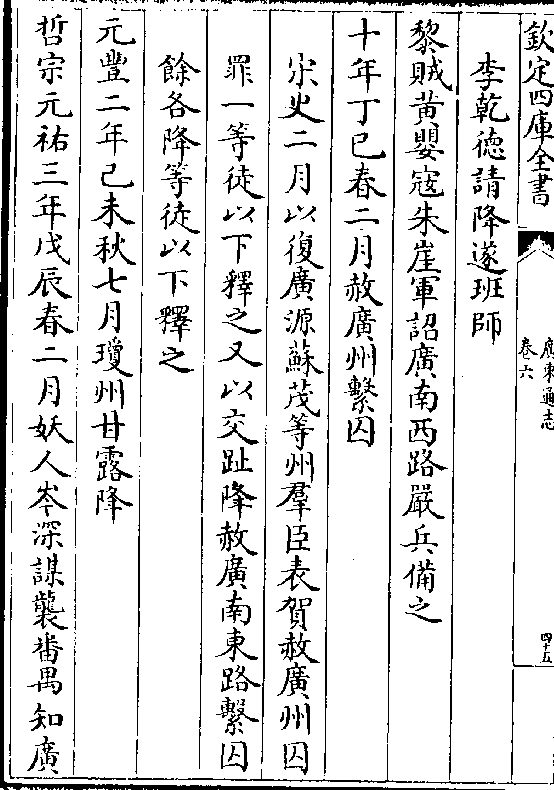 欽定四庫全書
廣東通志
卷六
四十五
李乾德請降遂班師
黎賊黃嬰寇朱崖軍詔廣南西路嚴兵備之
十年丁巳春二月赦廣州繫囚
宋史二月以復廣源蘇茂等州羣臣表賀赦廣州囚
罪一等徒以下釋之又以交趾降赦廣南東路繫囚
餘各降等徒以下釋之
元豐二年己未秋七月瓊州甘露降
哲宗元祐三年戊辰春二月妖人岑深謀襲番禺知廣